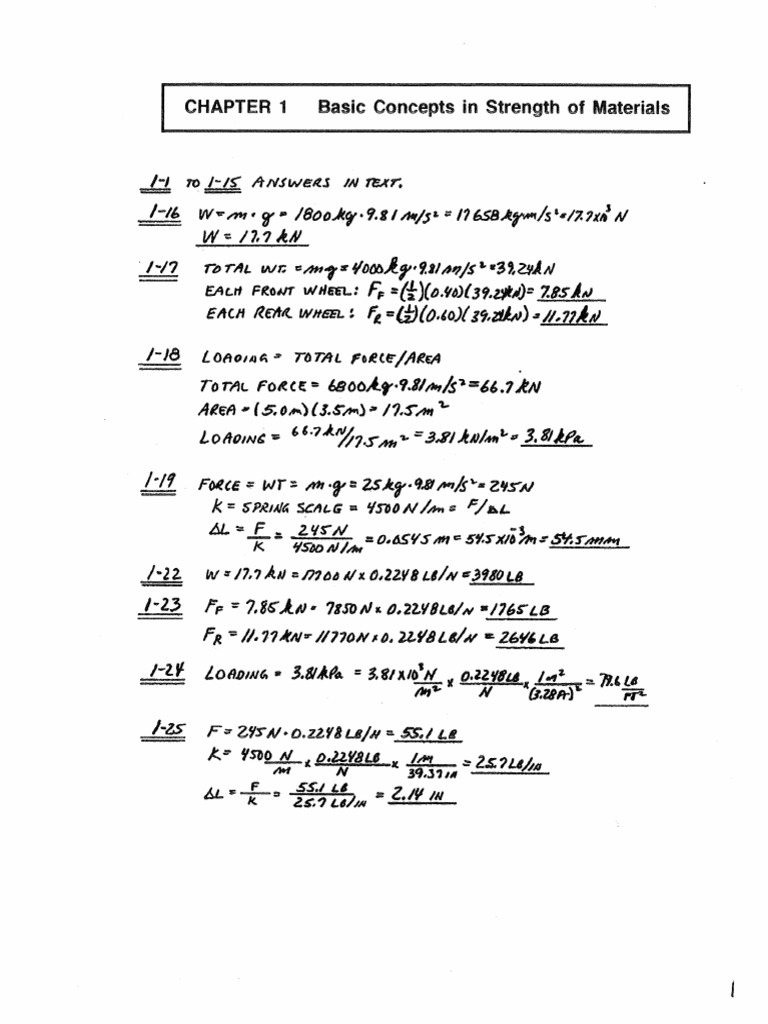 CHAPTER 1 Basic Concepts in Strength of Materials
1-1 TO 1-15 ANSWERS IN TEXT.
1-16 W = m · g = 1800 kg · 9.81 m/s² = 17658 kg·m/s² = 17.7x10³ N
W = 17.7 kN
1-17 TOTAL WT. = mg = 4000 kg · 9.81 m/s² = 39.24 kN
EACH FRONT WHEEL: F_F = (½)(0.40)(39.24 kN) = 7.85 kN
EACH REAR WHEEL: F_R = (½)(0.60)(39.24 kN) = 11.77 kN
1-18 LOADING = TOTAL FORCE/AREA
TOTAL FORCE = 6800 kg · 9.81 m/s² = 66.7 kN
AREA = (5.0 m)(3.5 m) = 17.5 m²
LOADING = 66.7 kN/17.5 m² = 3.81 kN/m² = 3.81 kPa
1-19 FORCE = WT = m · g = 25 kg · 9.81 m/s² = 245 N
K = SPRING SCALE = 4500 N/m = F/ΔL
ΔL = F/K = 245 N/4500 N/m = 0.0545 m = 54.5x10⁻³ m = 54.5 mm
1-22 W = 17.7 kN = 17700 N x 0.2248 LB/N = 3980 LB
1-23 F_F = 7.85 kN = 7850 N x 0.2248 LB/N = 1765 LB
F_R = 11.77 kN = 11770 N x 0.2248 LB/N = 2646 LB
1-24 LOADING = 3.81 kPa = 3.81x10³ N/m² x 0.2248 LB/N x 1 m²/(3.28 FT)² = 79.6 LB/FT²
1-25 F = 245 N · 0.2248 LB/N = 55.1 LB
K = 4500 N/m x 0.2248 LB/N x 1 m/39.37 IN = 25.7 LB/IN
ΔL = F/K = 55.1 LB/25.7 LB/IN = 2.14 IN
1